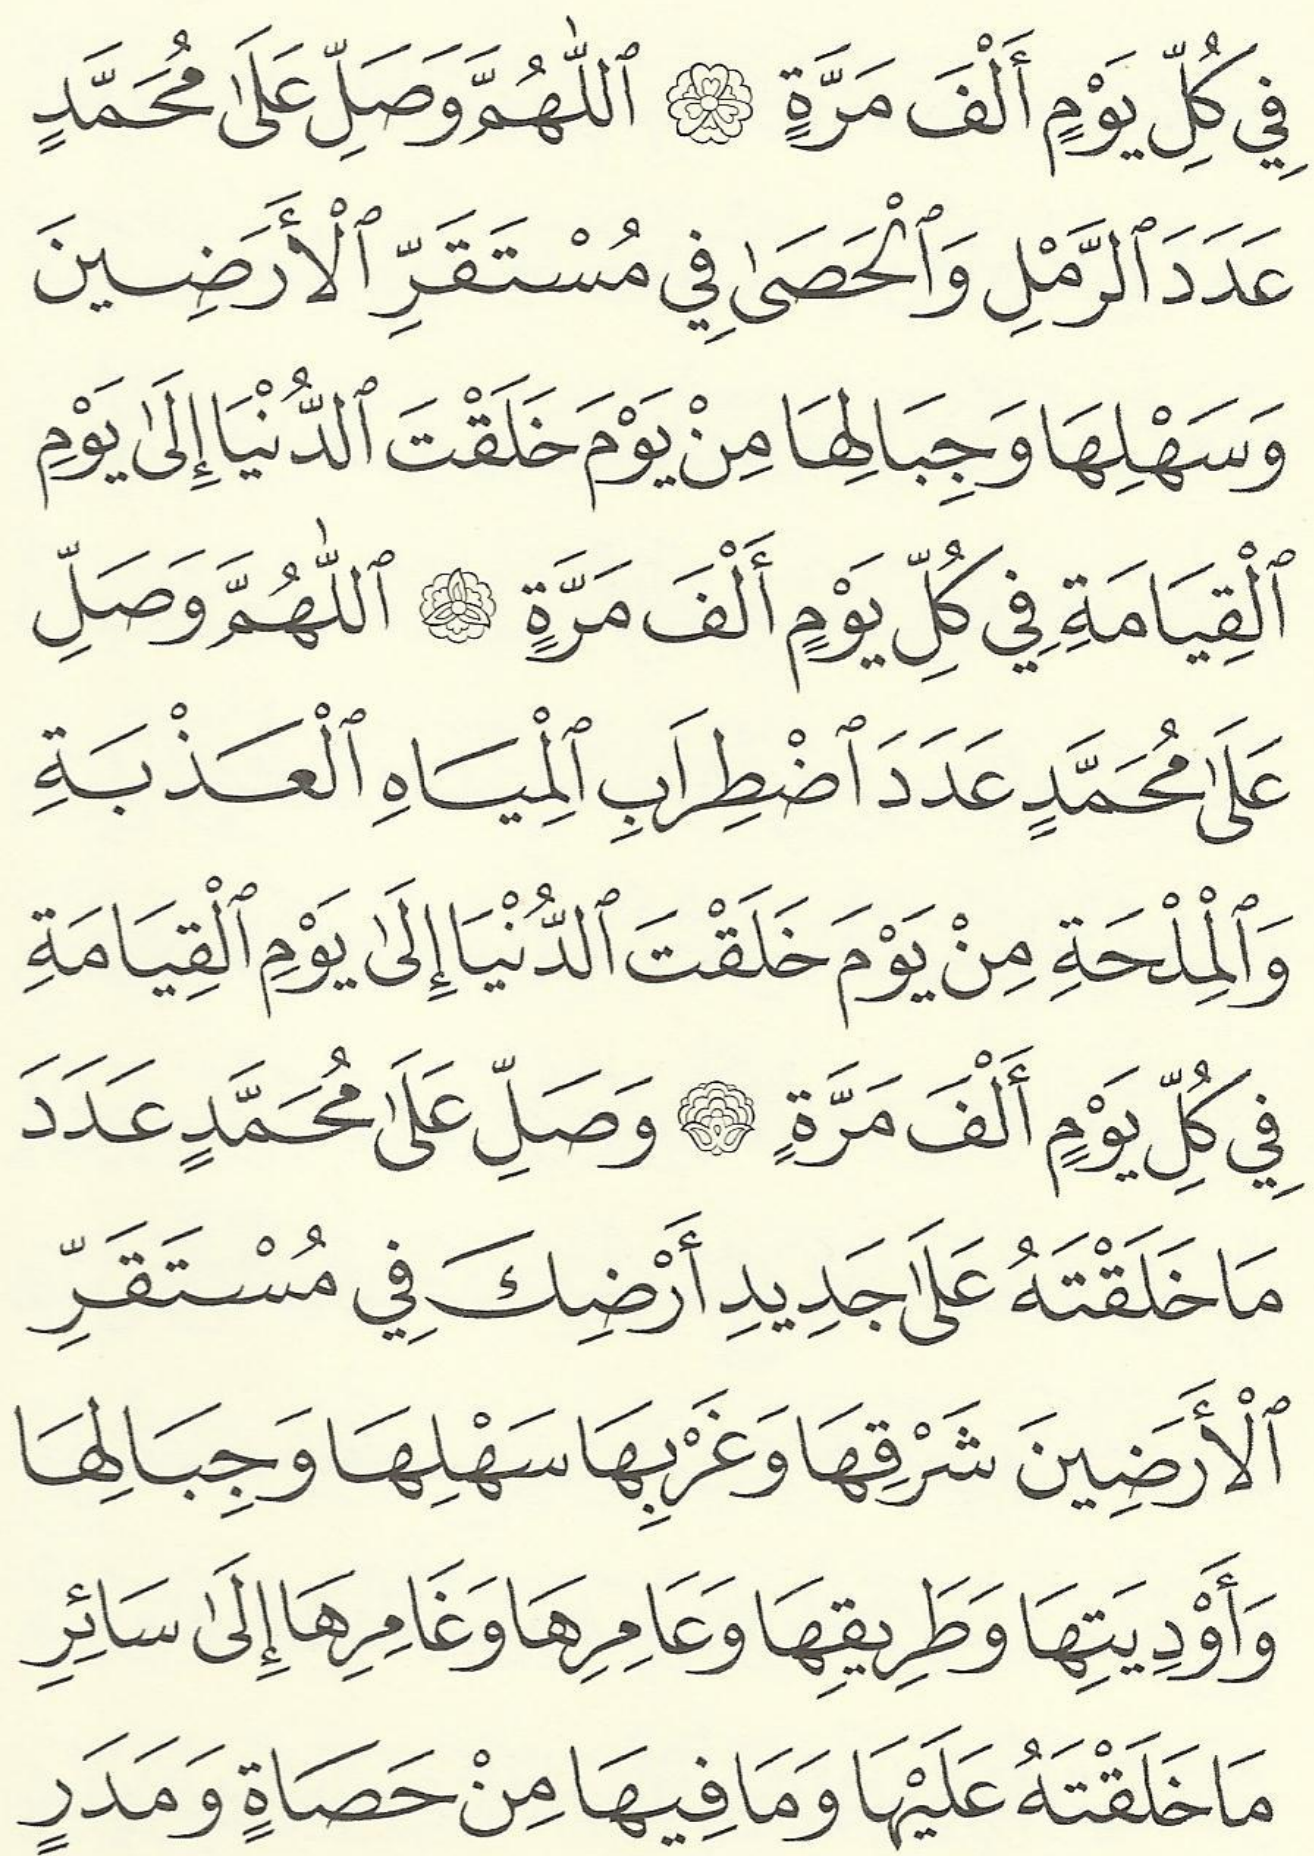 فِي كُلِّ يَوْمٍ أَلْفَ مَرَّةٍ ۞ ٱللّٰهُمَّ وَصَلِّ عَلَىٰ مُحَمَّدٍ
عَدَدَ ٱلرَّمْلِ وَٱلْحَصَىٰ فِي مُسْتَقَرِّ ٱلْأَرَضِينَ
وَسَهْلِهَا وَجِبَالِهَا مِنْ يَوْمَ خَلَقْتَ ٱلدُّنْيَا إِلَىٰ يَوْمِ
ٱلْقِيَامَةِ فِي كُلِّ يَوْمٍ أَلْفَ مَرَّةٍ ۞ ٱللّٰهُمَّ وَصَلِّ
عَلَىٰ مُحَمَّدٍ عَدَدَ ٱضْطِرَابِ ٱلْمِيَاهِ ٱلْعَذْبَةِ
وَٱلْمِلْحَةِ مِنْ يَوْمَ خَلَقْتَ ٱلدُّنْيَا إِلَىٰ يَوْمِ ٱلْقِيَامَةِ
فِي كُلِّ يَوْمٍ أَلْفَ مَرَّةٍ ۞ وَصَلِّ عَلَىٰ مُحَمَّدٍ عَدَدَ
مَا خَلَقْتَهُ عَلَىٰ جَدِيدِ أَرْضِكَ فِي مُسْتَقَرِّ
ٱلْأَرَضِينَ شَرْقِهَا وَغَرْبِهَا سَهْلِهَا وَجِبَالِهَا
وَأَوْدِيَتِهَا وَطَرِيقِهَا وَعَامِرِهَا وَغَامِرِهَا إِلَىٰ سَائِرِ
مَا خَلَقْتَهُ عَلَيْهَا وَمَا فِيهَا مِنْ حَصَاةٍ وَمَدَرٍ